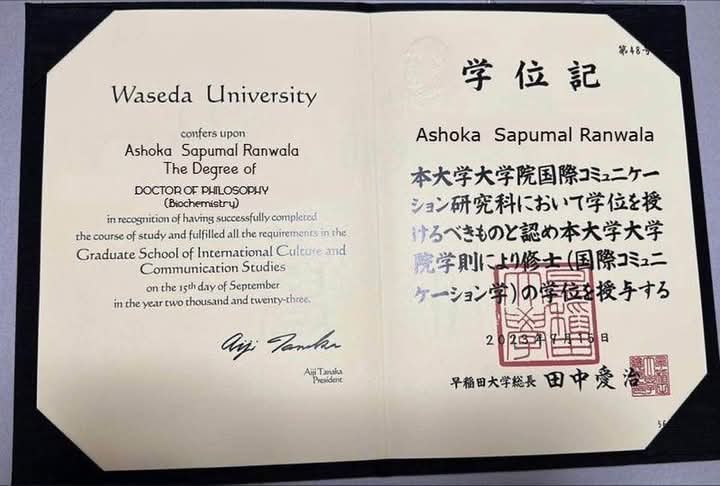 Waseda University
confers upon
Ashoka Sapumal Ranwala
The Degree of
DOCTOR OF PHILOSOPHY
(Biochemistry)
in recognition of having successfully completed
the course of study and fulfilled all the requirements in the
Graduate School of International Culture and
Communication Studies
on the 15th day of September
in the year two thousand and twenty-three.
Aiji Tanaka
Aiji Tanaka
President
第48号
学位記
Ashoka Sapumal Ranwala
本大学大学院国際コミュニケー
ション研究科において学位を授
けるべきものと認め本大学大学
院学則により修士(国際コミュニ
ケーション学)の学位を授与する
2023年9月15日
早稲田大学総長 田中愛治